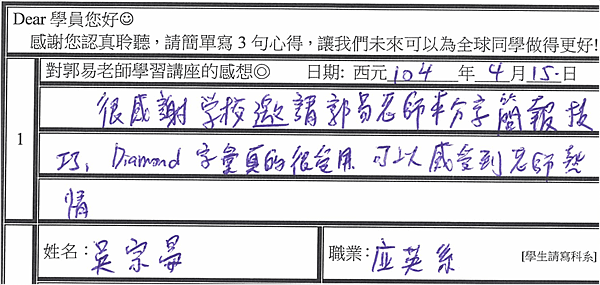 Dear 學員您好☺
感謝您認真聆聽,請簡單寫 3 句心得,讓我們未來可以為全球同學做得更好!
對郭易老師學習講座的感想◎ 日期: 西元 104 年 4 月 15 日
1
很感謝学校邀請郭易老師来分享簡報技
巧, Diamond 字彙真的很受用 可以感受到老師熱
情
姓名: 吳宗晏 職業: 应英系 [學生請寫科系]